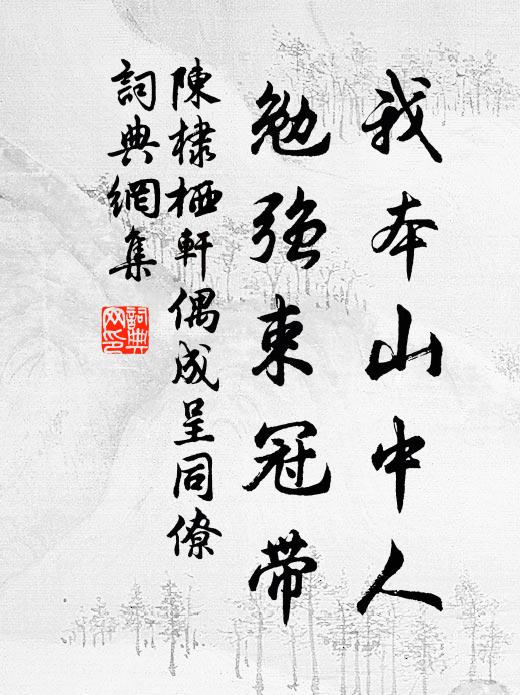 我本山中人
勉強束冠帶
陳棣栖軒偶成呈同僚
詞典網集
詞典网印